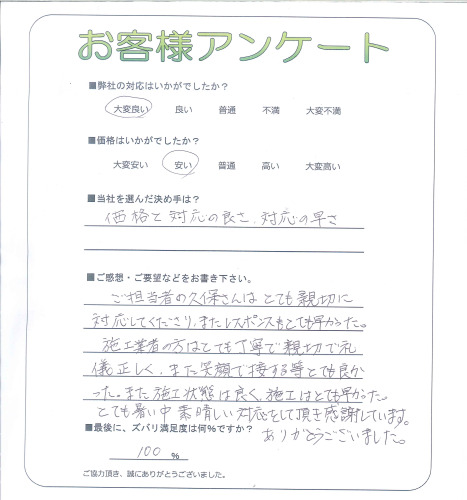 お客様アンケート
■弊社の対応はいかがでしたか？
大変良い 良い 普通 不満 大変不満
■価格はいかがでしたか？
大変安い 安い 普通 高い 大変高い
■当社を選んだ決め手は？
価格と対応の良さ、対応の早さ
■ご感想・ご要望などをお書き下さい。
ご担当者の久保さんはとても親切に
対応してくださり、またレスポンスもとても早かった。
施工業者の方はとても丁寧で親切で礼
儀正しく、また笑顔で接する等とても良か
った。また施工状態は良く、施工はとても早かった
とても暑い中素晴しい対応をして頂き感謝しています。
ありがとうございました。
■最後に、ズバリ満足度は何%ですか？
100 %
ご協力頂き、誠にありがとうございました。